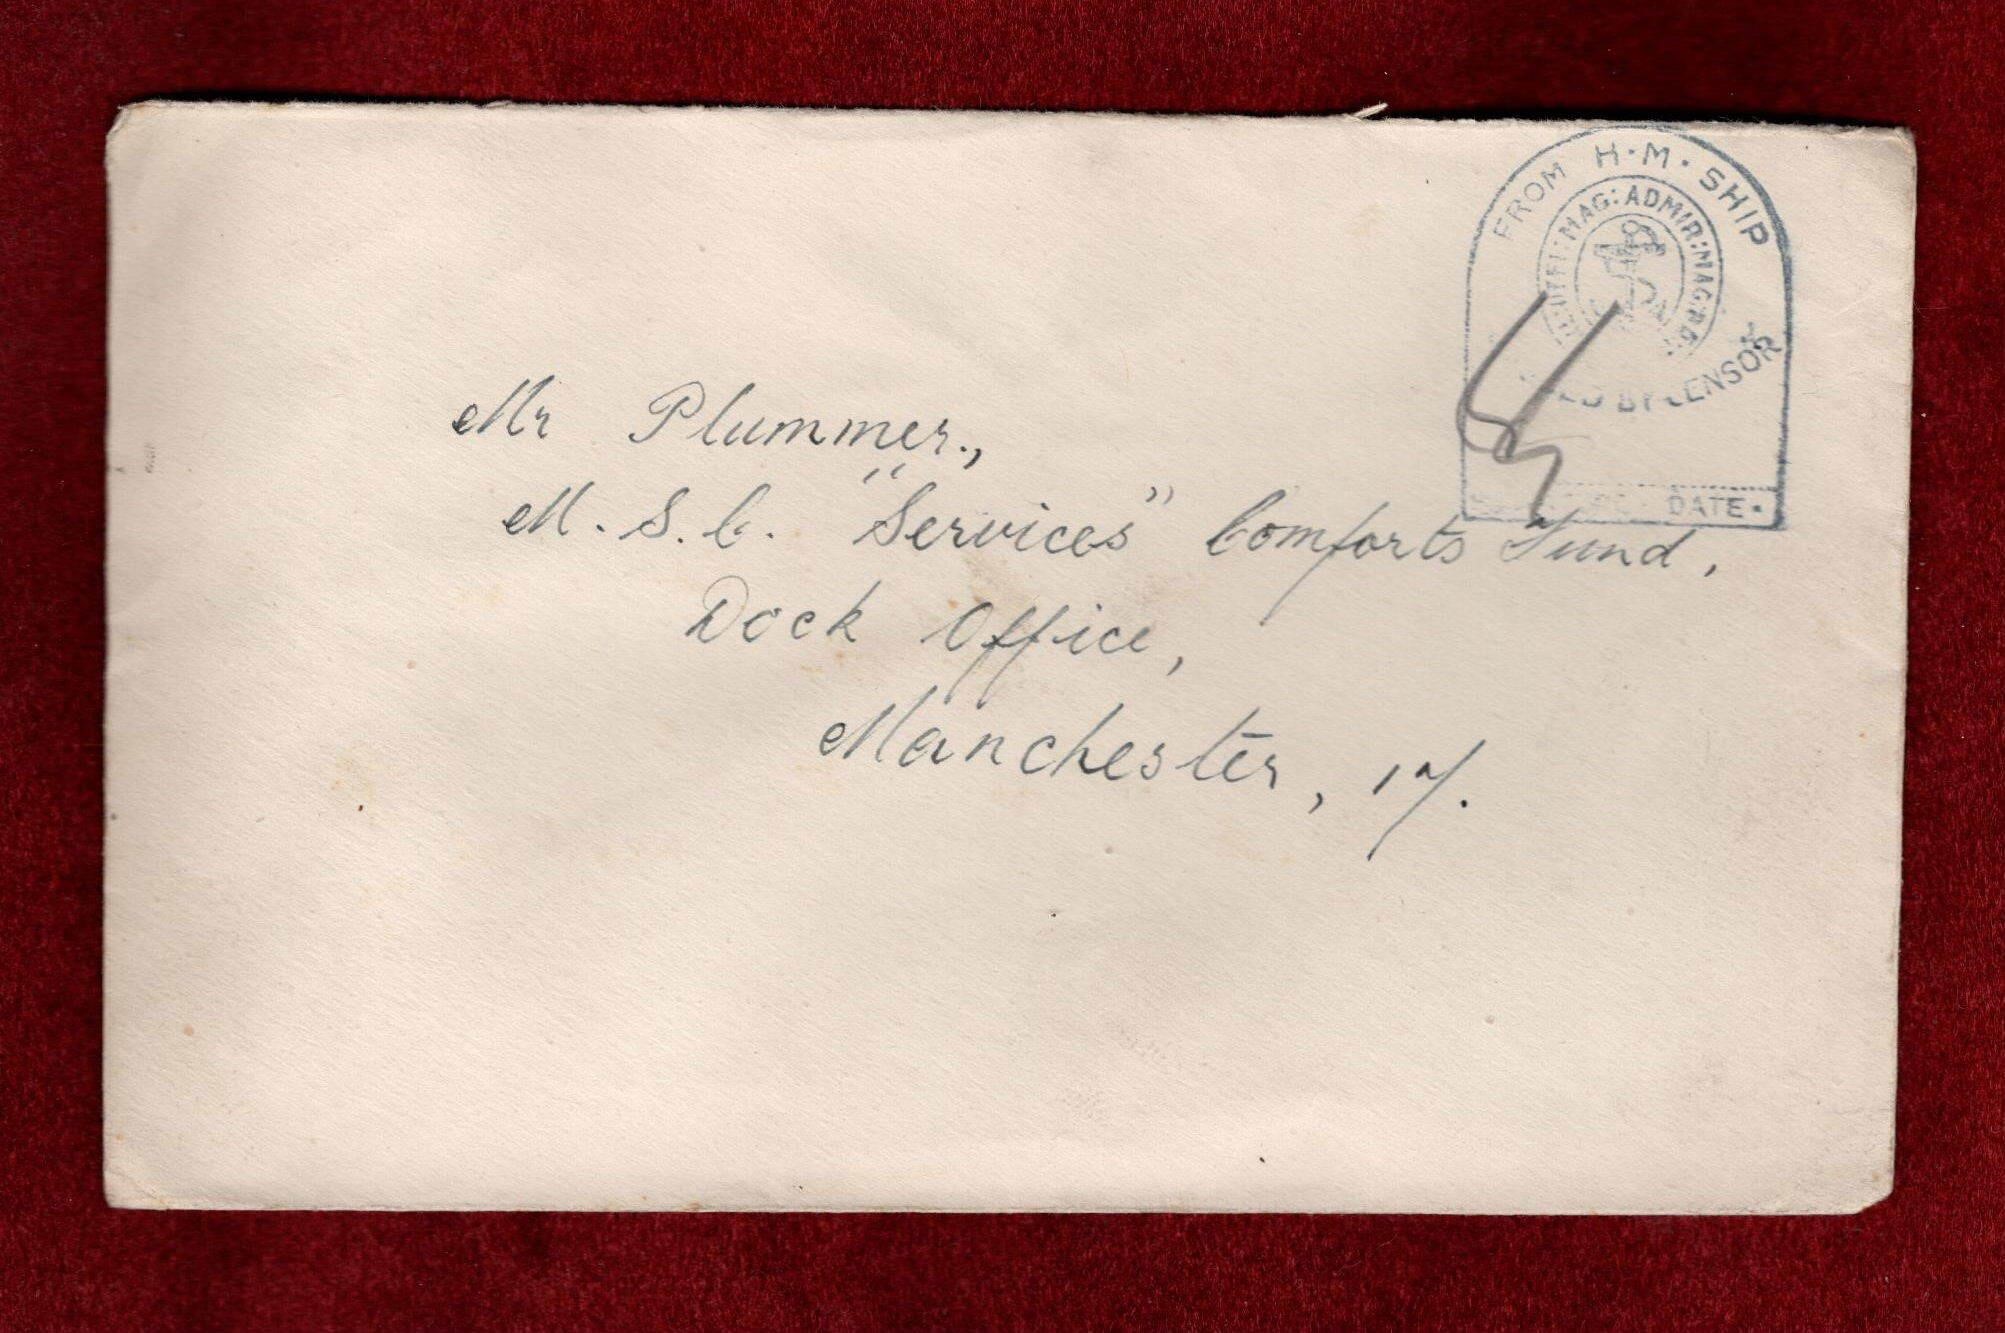 FROM H·M·SHIP
MAG: ADMIR: MAG:
BY CENSOR
DATE·
Mr Plummer.,
M. S. C. "Services" Comforts Fund,
Dock Office,
Manchester, 17.